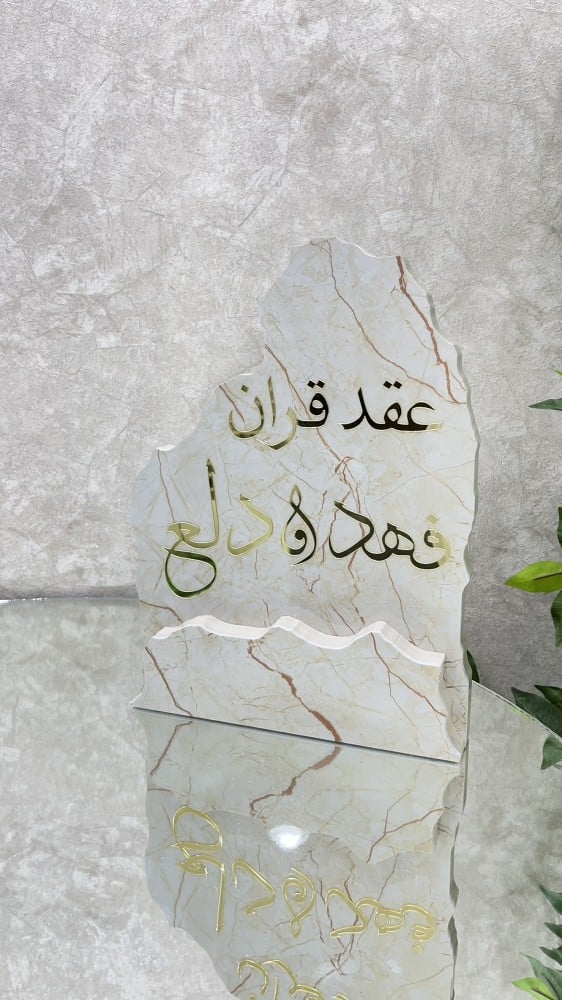 عقد قران
فهد و دلع